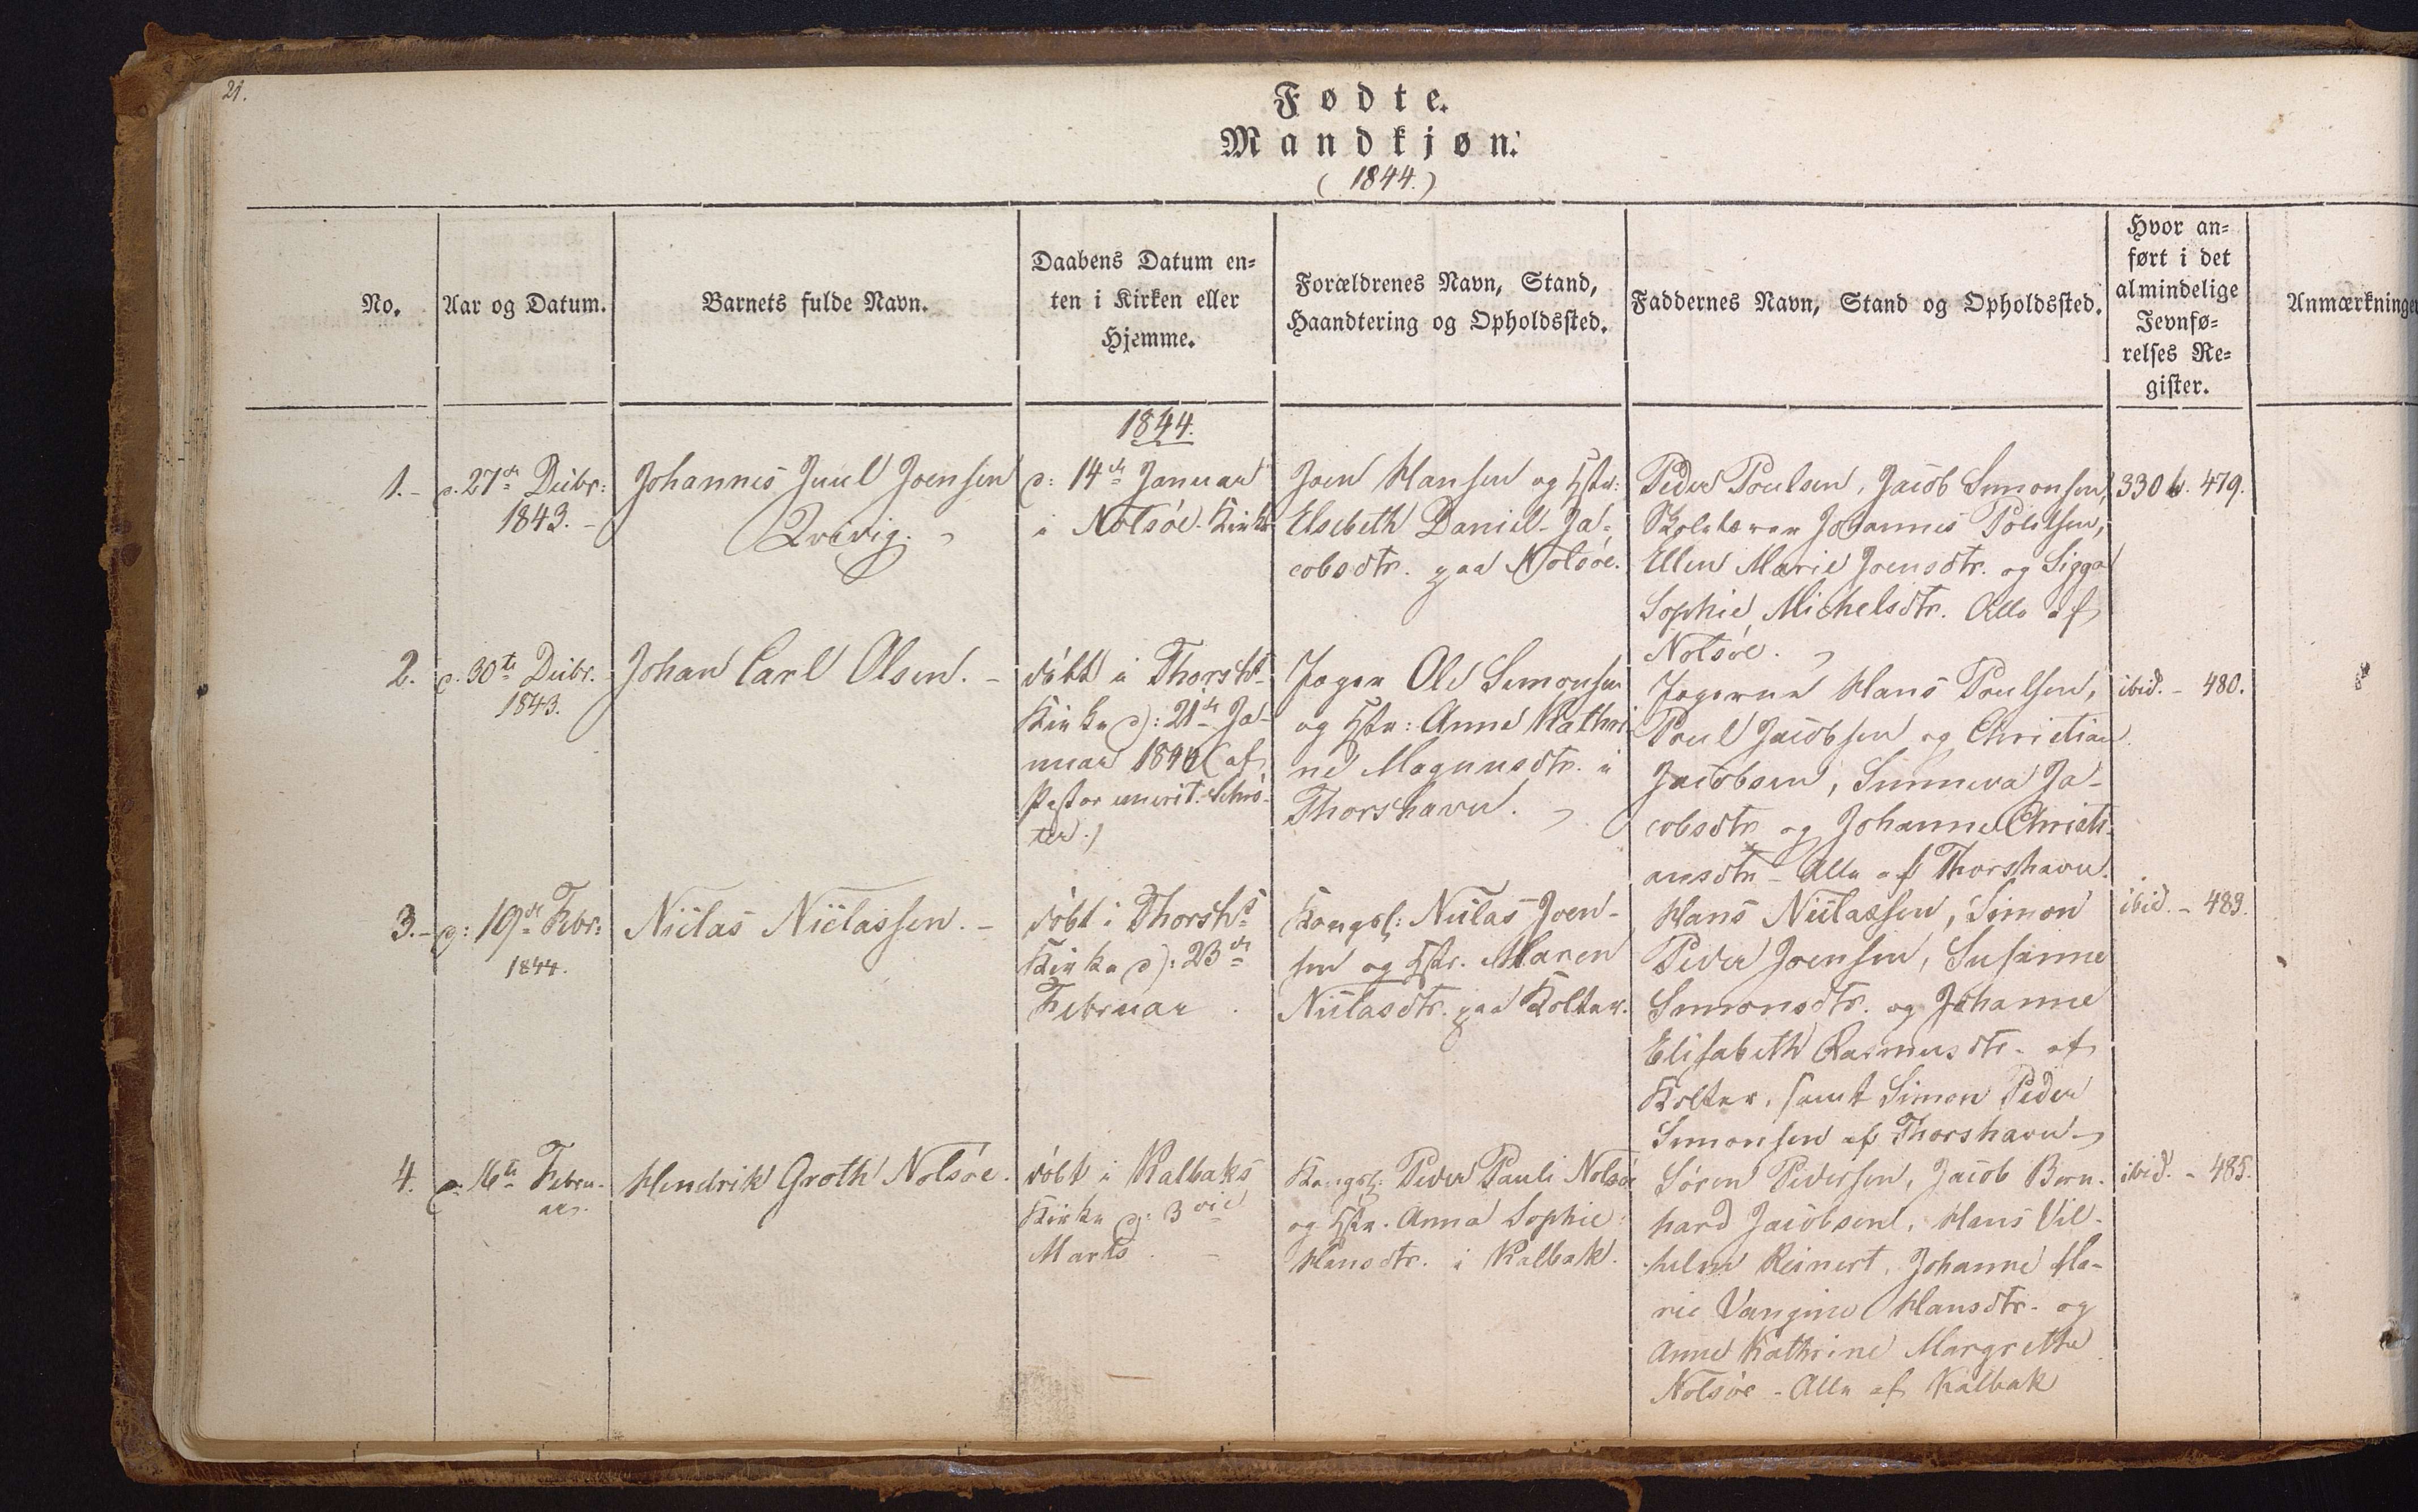 21.
Fødte.
Mandkjøn.
(1844.)
No.
Aar og Datum.
Barnets fulde Navn.
Daabens Datum en=
ten i Kirken eller
Hjemme.
Forældrenes Navn, Stand,
Haandtering og Opholdssted.
Faddernes Navn, Stand og Opholdssted.
Hvor an=
ført i det
almindelige
Jevnfø=
relses Re=
gister.
Anmærkninger
1.-
d. 27de Decbr:
1843.-
Johannes Juul Joensen
Qvivig.
1844.
d: 14de Januar
i Nolsöe Kirke
Joen Hansen og Hstr:
Elsebeth Daniel-Ja-
cobsdtr. paa Nolsöe.
Peder Poulsen, Jacob Simonsen,
Skolelærer Johannes Poulsen,
Ellen Marie Joensdtr. og Sigga
Sophie Michelsdtr. Alle af
Nolsöe.
330 b. 479.
2.
d. 30te Decbr.
1843.
Johan Carl Olsen.-
döbt i Thorshs
Kirke d: 21de Ja-
nuar 1844 (af
Pastor emerit: Schrö-
ter.)
Jæger Ole Simonsen
og Hstr: Anne Kathri
ne Magnusdtr. i
Thorshavn.
Jægerne Hans Poulsen,
Poul Jacobsen og Christian
Jacobsen, Sunneva Ja-
cobsdtr og Johanne Christi-
ansdtr - Alle af Thorshavn.
ibid. - 480.
3.-
d: 19de Febr:
1844.
Niclas Niclassen.-
döbt i Thorshs
Kirke d: 23de
Februar.
Kongsf: Niclas Joen-
sen og Hstr. Maren
Niclasdtr. paa Kolter.
Hans Niclassen, Simon
Peder Joensen, Susanne
Simonsdtr. og Johanne
Elisabeth Rasmusdtr. af
Kolter, samt Simon Peder
Simonsen af Thorshavn
ibid. - 483.
4.
d: 16te Febru-
ar.
Hendrik Groth Nolsöe.
döbt i Kalbaks
Kirke d: 3die
Marts.-
Kongsf: Peder Pauli Nolsöe
og Hstr. Anna Sophie
Hansdtr. i Kalbak.
Sören Pedersen, Jacob Bern-
hard Jacobsen, Hans Vil-
helm Reinert, Johanne Ma-
rie Vangine Hansdtr. og
Anne Kathrine Margrethe
Nolsöe - Alle af Kalbak
ibid. - 485.